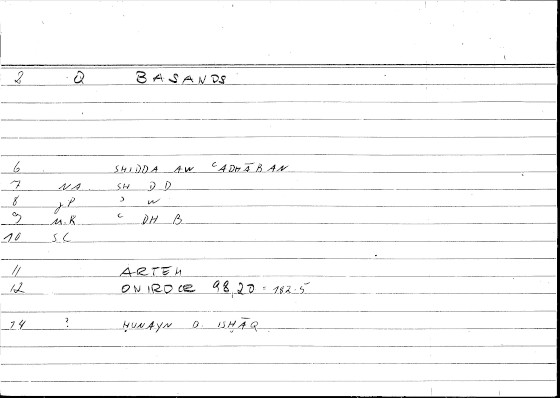 2 Q BASANOS
6 SHIDDA AW ʿADHĀBAN
7 NA SH D D
8 gP ʾ W
9 M.R ʿ DH B
10 SC
11 ARTEM
12 ONIROCR 98,20 = 182.5
14 ? ḤUNAYN B. ISḤĀQ